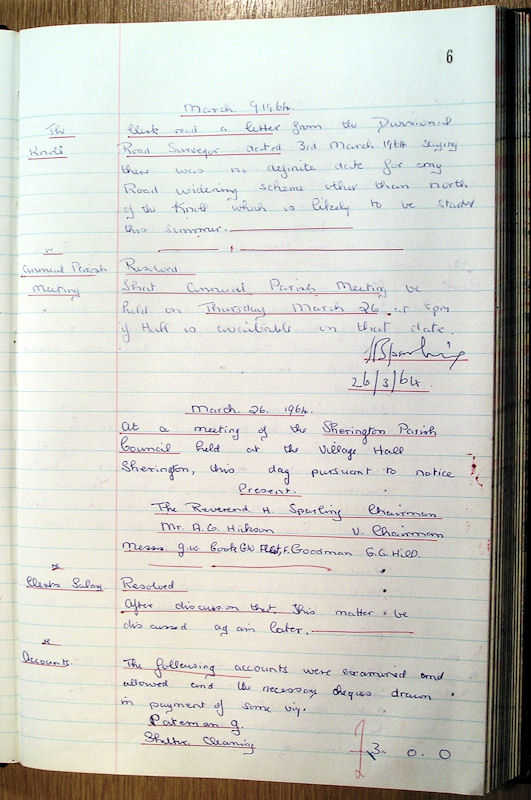 6
March 9 1964.
The Clerk read a letter from the Divisional
Knoll Road Surveyor dated 3rd March 1964 saying
there was no definite date for any
Road widening scheme other than north
of the Knoll which is likely to be started
this summer.
Annual Parish Resolved
Meeting That Annual Parish Meeting be
held on Thursday March 26 at 8pm
if Hall is available on that date.
26/3/64.
March. 26. 1964.
At a meeting of the Sherington Parish
Council held at the Village Hall
Sherington, this day pursuant to notice
Present.
The Reverend H. Sparling Chairman
Mr. A.G. Hickson V. Chairman
Messrs J.W. Cook F. Goodman G.G. Hill.
Clerks Salary. Resolved
After discussion that this matter be
discussed again later.
Accounts. The following accounts were examined and
allowed and the necessary cheques drawn
in payment of same viz.
Pateman G.
Shelter Cleaning £3. 0. 0